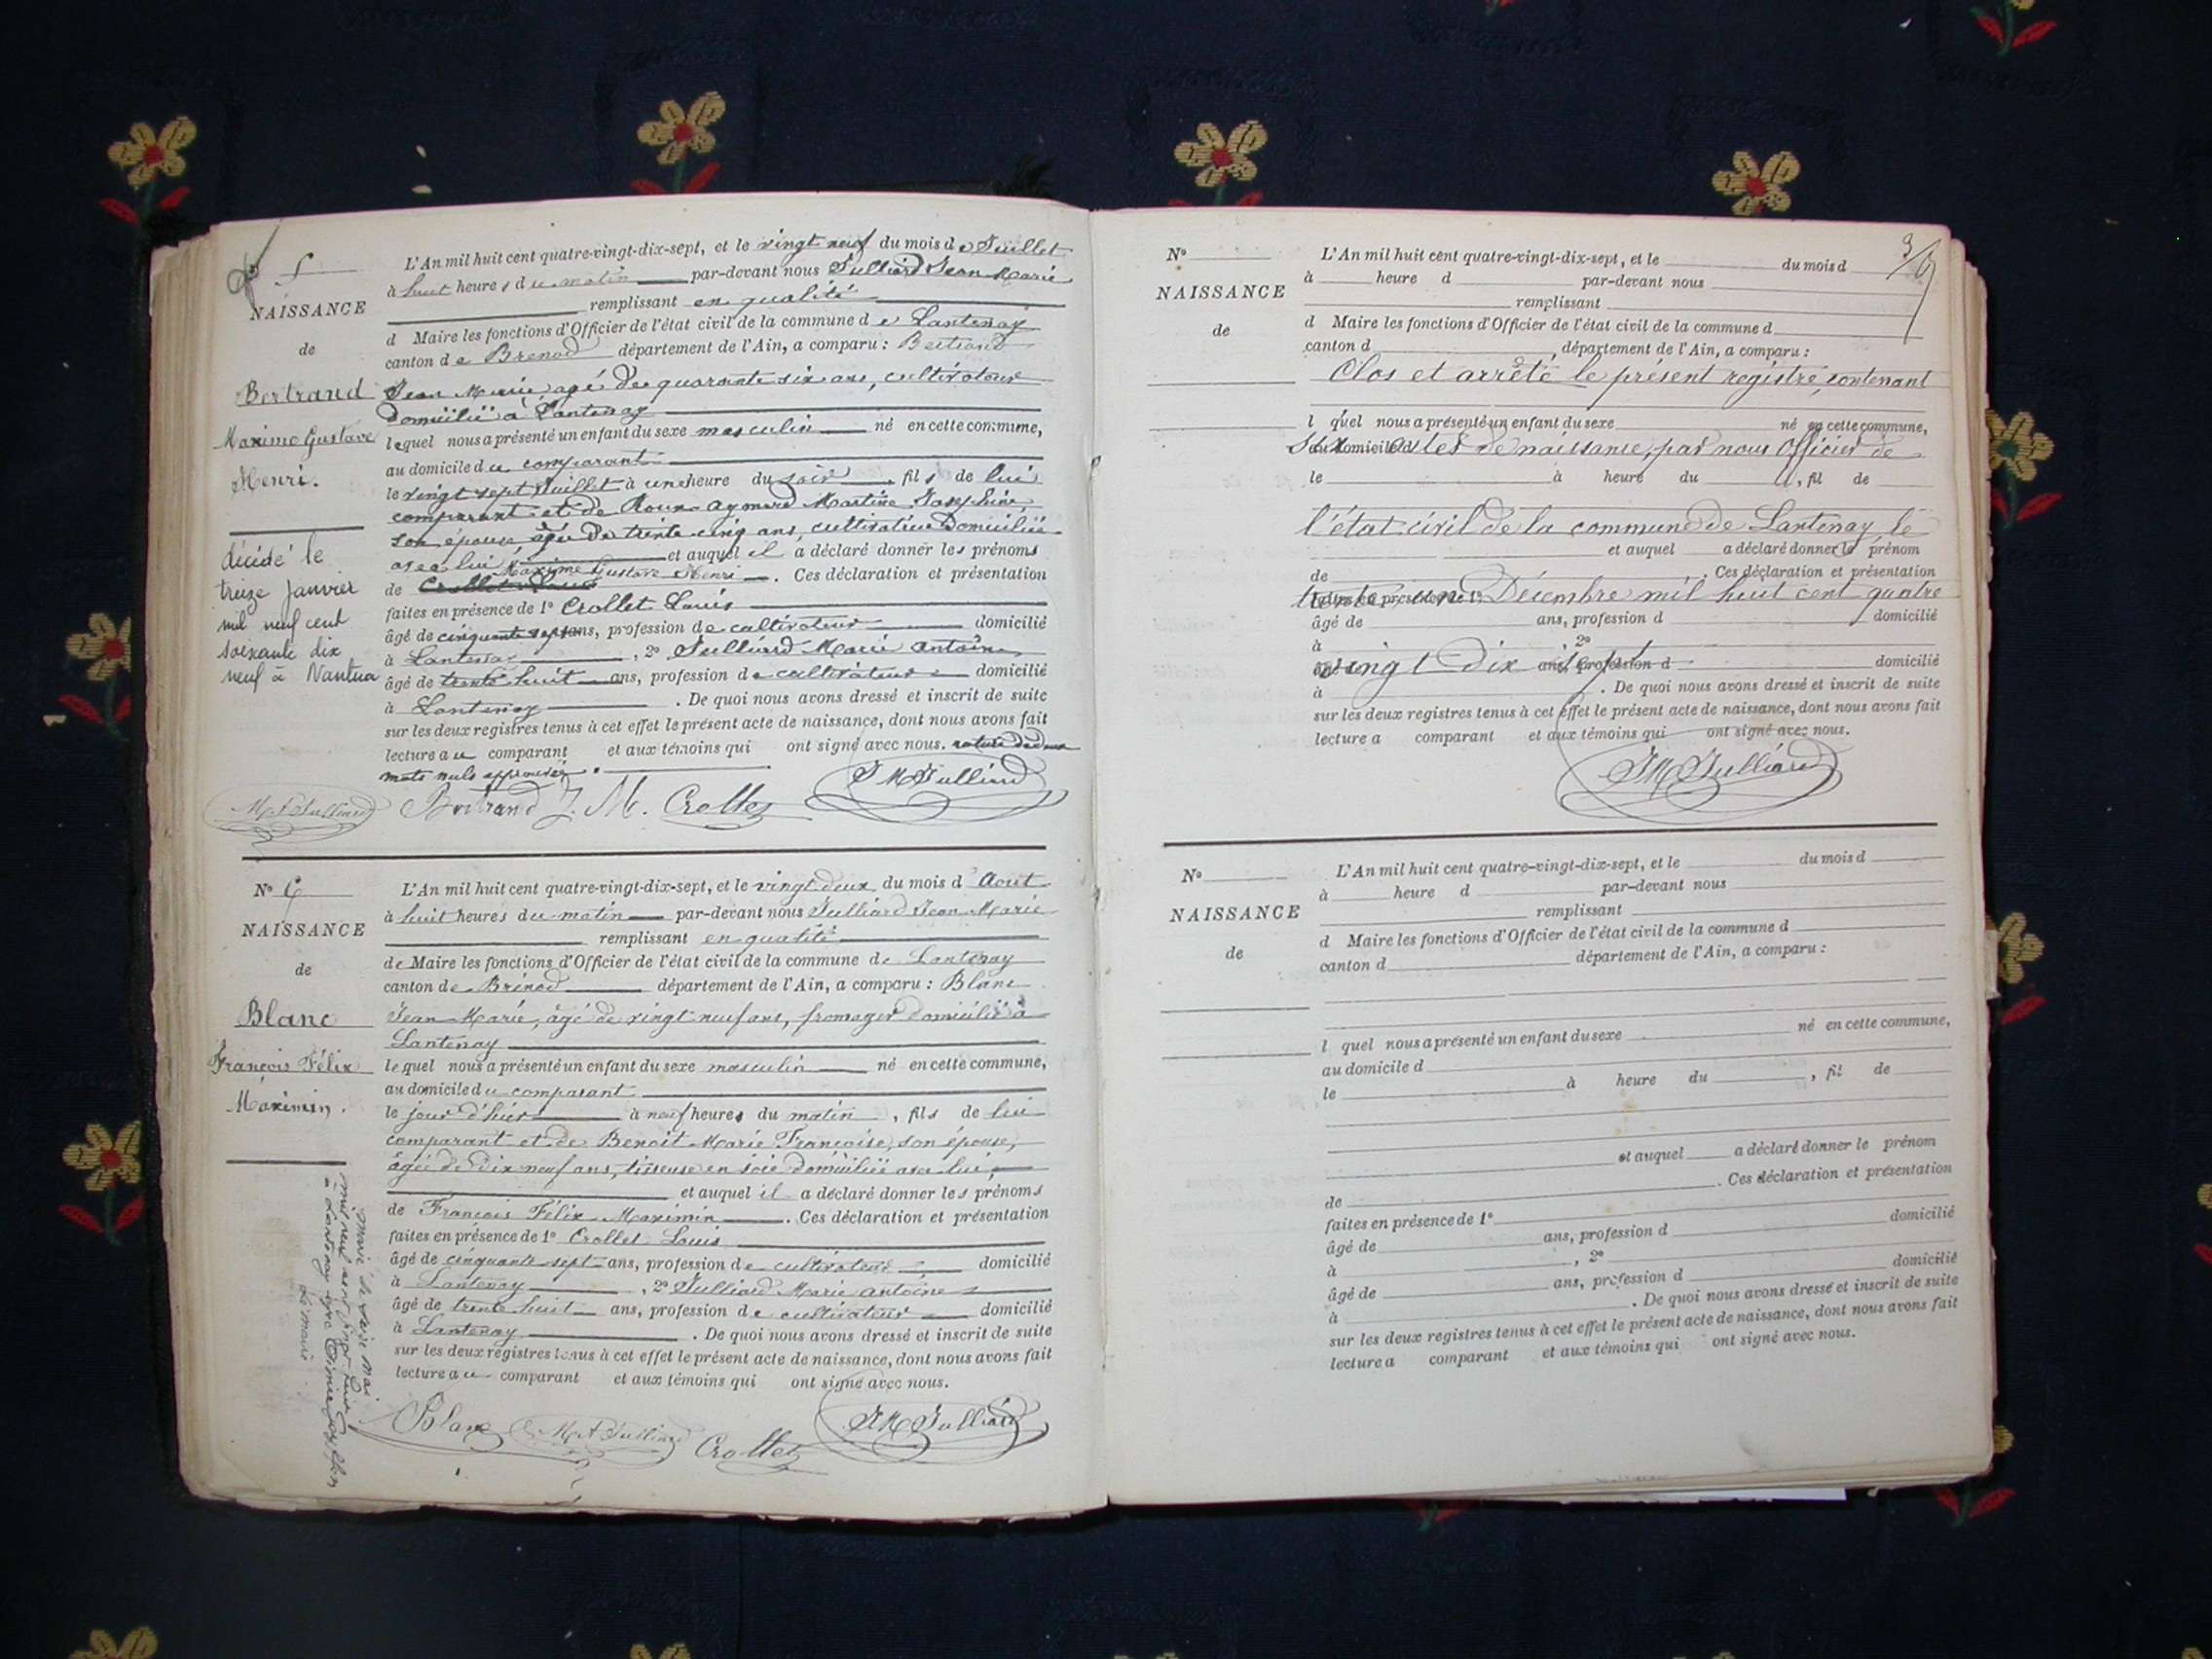 N° 5
NAISSANCE
de
Bertrand
Maxime Gustave
Henri.
décédé le
treize janvier
mil neuf cent
soixante dix
neuf à Nantua
L'An mil huit cent quatre-vingt-dix-sept, et le vingt neuf du mois de Juillet
à huit heures du matin par-devant nous Julliard Jean Marie
remplissant en qualité
d Maire les fonctions d'Officier de l'état civil de la commune de Lantenay
canton de Brenod département de l'Ain, a comparu : Bertrand
Jean Marie, agé de quarante six ans, cultivateur
domicilié à Lantenay
lequel nous a présenté un enfant du sexe masculin né en cette commune,
au domicile du comparant
le vingt sept Juillet à une heure du soir, fils de lui
comparant et de Roux Aymard Martine Joséphine
son épouse âgée de trente cinq ans, cultivatrice domiciliée
avec lui, et auquel il a déclaré donner les prénoms
de Crollet Louis Maxime Gustave Henri. Ces déclaration et présentation
faites en présence de 1° Crollet Louis
âgé de cinquante sept ans, profession de cultivateur domicilié
à Lantenay, 2° Julliard Marie Antoine
âgé de trente huit ans, profession de cultivateur domicilié
à Lantenay. De quoi nous avons dressé et inscrit de suite
sur les deux registres tenus à cet effet le présent acte de naissance, dont nous avons fait
lecture au comparant et aux témoins qui ont signé avec nous. rature de deux
mots nuls approuvée.
M A Julliard Bertrand J. M. Crollet J M Julliard
N° 6
NAISSANCE
de
Blanc
François Félix
Maximin.
Marié le seize mai
mil neuf cent vingt
à Lantenay avec
Le maire
L'An mil huit cent quatre-vingt-dix-sept, et le vingt deux du mois d'Aout
à huit heures du matin par-devant nous Julliard Jean Marie
remplissant en qualité
de Maire les fonctions d'Officier de l'état civil de la commune de Lantenay
canton de Brénod département de l'Ain, a comparu : Blanc
Jean Marie, âgé de vingt neuf ans, fromager domicilié à
Lantenay
lequel nous a présenté un enfant du sexe masculin né en cette commune,
au domicile du comparant
le jour d'hier à neuf heures du matin, fils de lui
comparant et de Benoit Marie Françoise, son épouse,
âgée de dix neuf ans, tisseuse en soie domiciliée avec lui,
et auquel il a déclaré donner les prénoms
de François Félix Maximin. Ces déclaration et présentation
faites en présence de 1° Crollet Louis
âgé de cinquante sept ans, profession de cultivateur domicilié
à Lantenay, 2° Julliard Marie Antoine
âgé de trente huit ans, profession de cultivateur domicilié
à Lantenay. De quoi nous avons dressé et inscrit de suite
sur les deux registres tenus à cet effet le présent acte de naissance, dont nous avons fait
lecture au comparant et aux témoins qui ont signé avec nous.
Blanc M A Julliard Crollet J M Julliard
N°
NAISSANCE
de
L'An mil huit cent quatre-vingt-dix-sept, et le du mois d
à heure d par-devant nous
remplissant
d Maire les fonctions d'Officier de l'état civil de la commune d
canton d département de l'Ain, a comparu :
Clos et arrêté le présent registre, contenant
l quel nous a présenté un enfant du sexe né en cette commune,
au domicile d
six actes de naissance, par nous Officier de
le à heure du , fil de
l'état civil de la commune de Lantenay le
et auquel a déclaré donner le prénom
de . Ces déclaration et présentation
faites en présence de 1°
trente un Décembre mil huit cent quatre
âgé de ans, profession d domicilié
à , 2°
vingt dix sept
âgé de ans, profession d domicilié
à . De quoi nous avons dressé et inscrit de suite
sur les deux registres tenus à cet effet le présent acte de naissance, dont nous avons fait
lecture a comparant et aux témoins qui ont signé avec nous.
J M Julliard
N°
NAISSANCE
de
L'An mil huit cent quatre-vingt-dix-sept, et le du mois d
à heure d par-devant nous
remplissant
d Maire les fonctions d'Officier de l'état civil de la commune d
canton d département de l'Ain, a comparu :
l quel nous a présenté un enfant du sexe né en cette commune,
au domicile d
le à heure du , fil de
et auquel a déclaré donner le prénom
de . Ces déclaration et présentation
faites en présence de 1°
âgé de ans, profession d domicilié
à , 2°
âgé de ans, profession d domicilié
à . De quoi nous avons dressé et inscrit de suite
sur les deux registres tenus à cet effet le présent acte de naissance, dont nous avons fait
lecture a comparant et aux témoins qui ont signé avec nous.